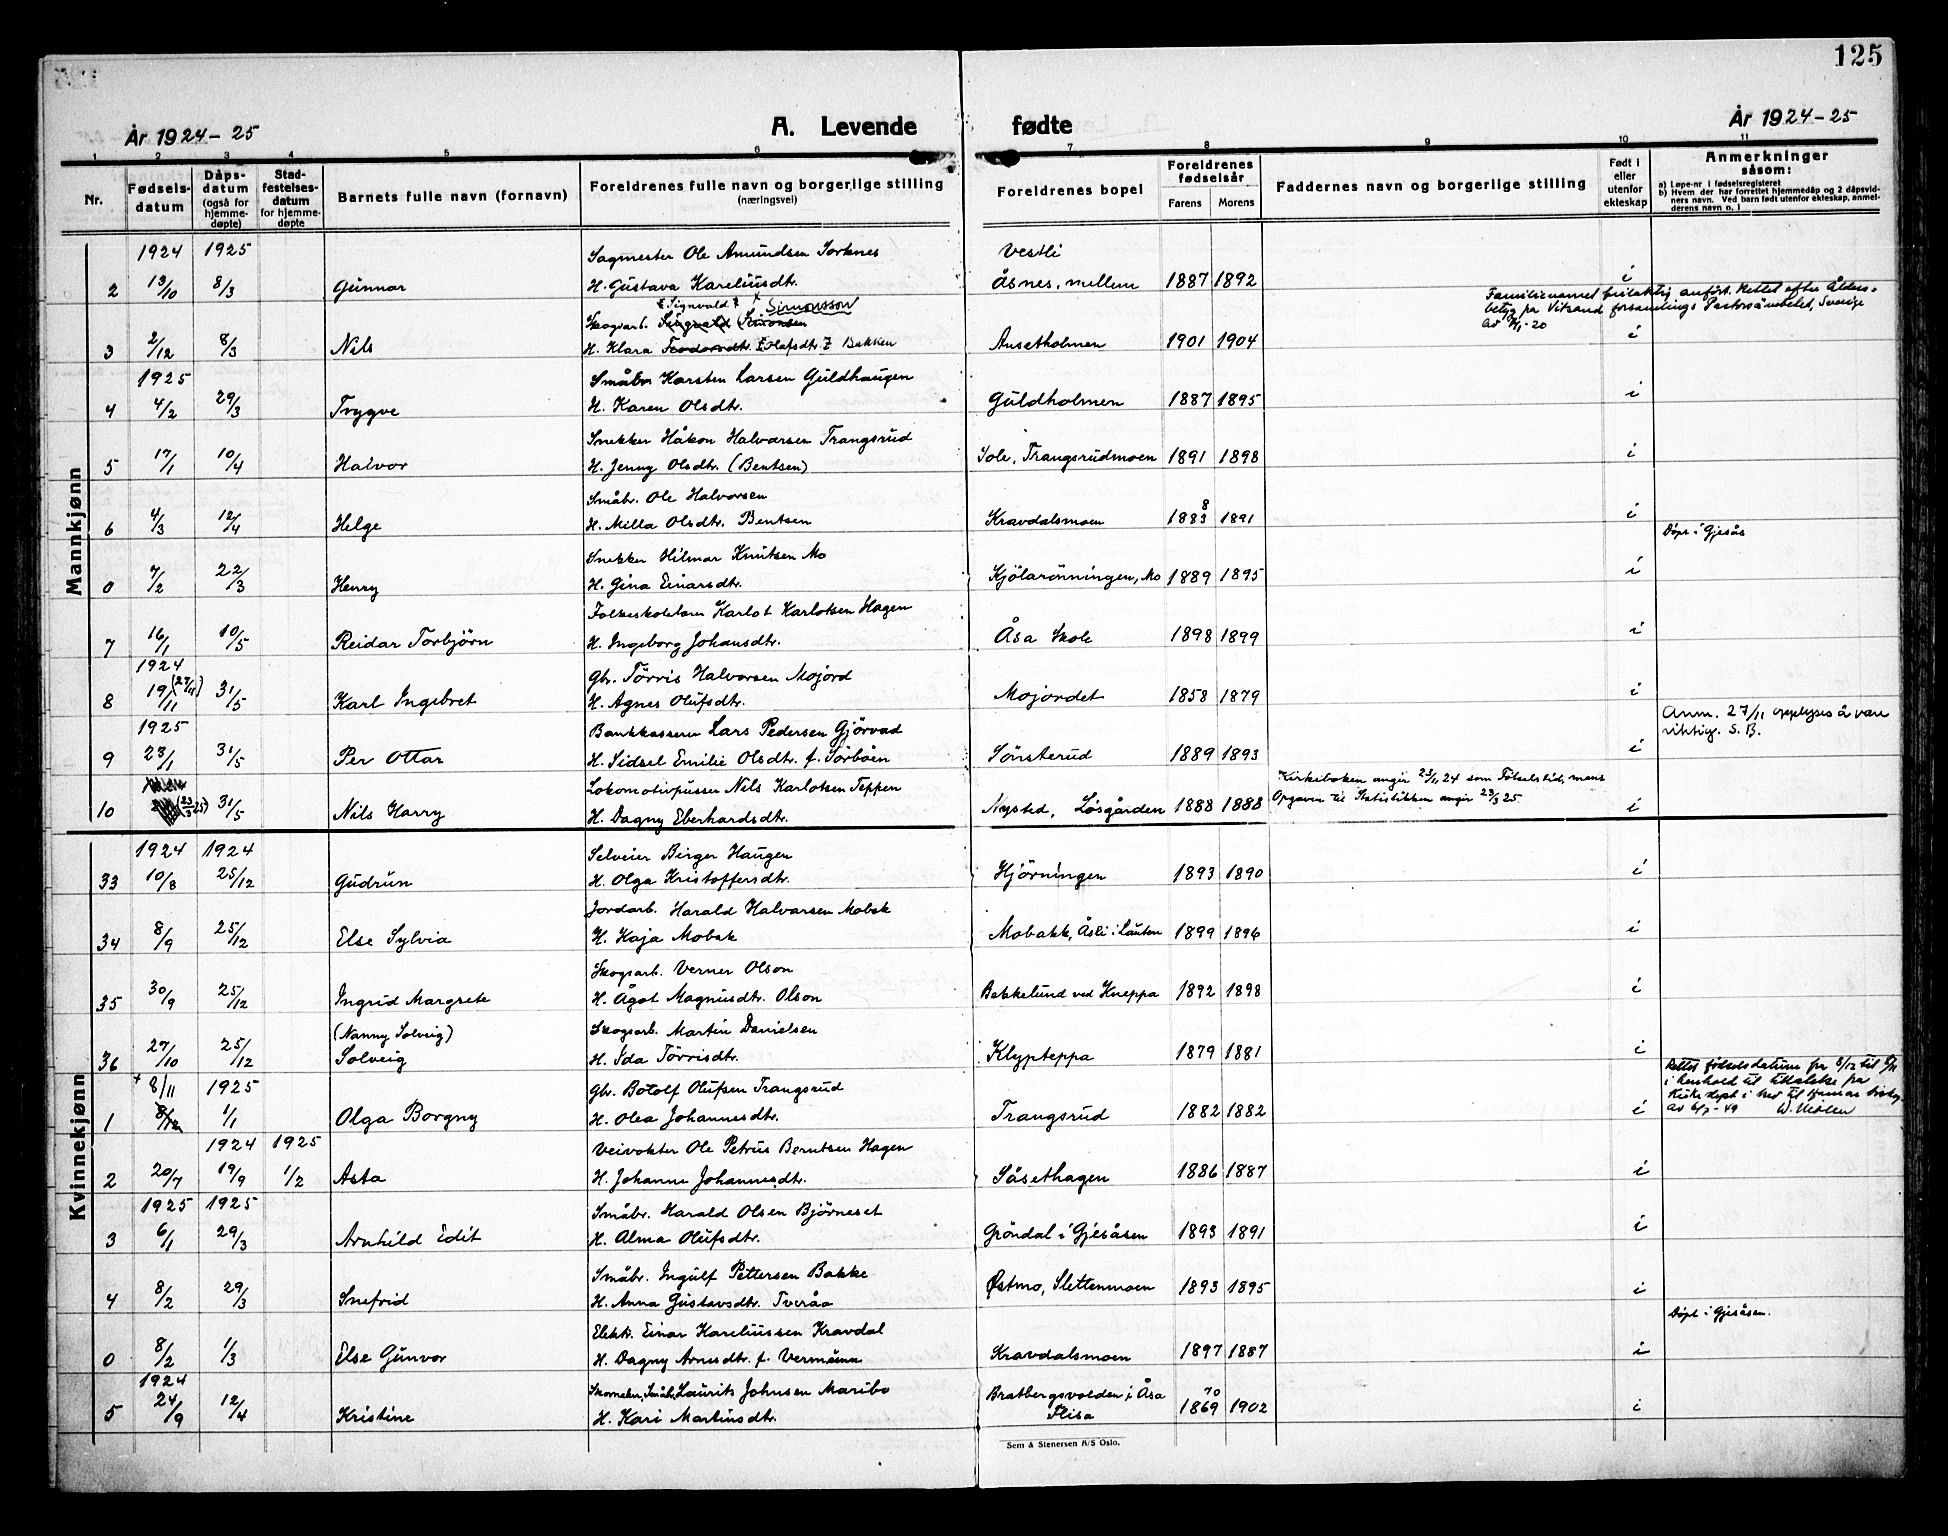 125
År 1924-25
A. Levende fødte
År 1924-25
1 2 3 4 5 6 7 8 9 10 11
Nr.
Fødsels-
datum
Dåps-
datum
(også for
hjemme-
døpte)
Stad-
festelses-
datum
for hjemme-
døpte
Barnets fulle navn (fornavn)
Foreldrenes fulle navn og borgerlige stilling
(næringsvei)
Foreldrenes bopel
Foreldrenes
fødselsår
Farens Morens
Faddernes navn og borgerlige stilling
Født i
eller
utenfor
ekteskap
Anmerkninger
såsom:
a) Løpe-nr i fødselsregisteret
b) Hvem der har forrettet hjemmedåp og 2 dåpsvid-
ners navn. Ved barn født utenfor ekteskap, anmel-
derens navn o. l
Mannkjønn
1924 1925 Sagmester Ole Amundsen Sorknes Vestli
2 13/10 8/3 Gunnar H. Gustava Kareliusdtr. Åsnes, mellem 1887 1892 i
Familienavnet feilaktig anført. Rettet efter Alders-
betyg fra Vitsand forsamlings Pastorsämbetet, Sverige
Sigvald Simonsson
Skogsarb. Sigvald Simonsen
3 2/12 8/3 Nils H. Klara Teodorsdtr. Olafsdtr. Bakken Ansetholmen 1901 1904 i
1925 Småbr Karsten Larsen Guldhaugen
4 4/2 29/3 Trygve H. Karen Olsdtr. Guldholmen 1887 1895 i
Snekker Håkon Halvorsen Trangsrud
5 17/1 10/4 Halvor H. Jenny Olsdtr. (Bentsen) Sole, Trangsrudmoen 1891 1898 i
Småbr. Ole Halvorsen
6 4/3 12/4 Helge H. Milla Olsdtr. Bentsen Kravdalsmoen 1883 8 1891 i
Døpt i Gjesås
Snekker Hilmar Knutsen Mo
0 7/2 22/3 Henry H. Gina Einarsdtr. Kjölarönningen, Mo 1889 1895 i
Folkeskolelærer Karlot Karlotsen Hagen
7 16/1 10/5 Reidar Torbjörn H. Ingeborg Johansdtr. Åsa Skole 1898 1899 i
1924 Gbr. Törris Halvorsen Mojord
8 19/11 (27/11) 31/5 Karl Ingebret H. Agnes Olufsdtr. Mojordet 1858 1879 i
Anm. 27/11 opplyses å være
riktig. S. B.
1925 Bankkasserer Lars Pedersen Gjörvad
9 23/1 31/5 Per Ottar H. Sidsel Emilie Olsdtr. f. Sörböen Sönsterud 1889 1893 i
Lokomotivpusser Nils Karlotsen Teppen
Kirkeboken angir 23/1, 24 som Fötselstid, mens
Opgaven til Statistikken angir 23/3 25.
10 (23/3 25) 31/5 Nils Harry H. Dagny Eberhardsdtr. Nysted, Løsgården 1888 1888 i
Kvinnekjønn
1924 1924 Selveier Birger Haugen
33 10/8 25/12 Gudrun H. Olga Kristoffersdtr. Hjörningen 1893 1890 i
Jordarb. Harald Halvorsen Mobak
34 8/9 25/12 Else Sylvia H. Kaja Mobak Mobakk, Åsli i Lauten 1899 1896 i
Skogsarb. Verner Olson
35 30/9 25/12 Ingrid Margrete H. Ågot Magnusdtr. Olson Bekkelund ved Kneppa 1892 1898 i
(Nanny Solveig) Skogsarb. Martin Danielsen
36 27/10 25/12 Solveig H. Ida Törrisdtr. Klypteppa 1879 1881 i
Rettet fødselsdatum fra 8/12 til 8/11
i henhold til skrivelse fra
8/11 1925 Gbr. Botolf Olufsen Trangsrud
1 8/12 1/1 Olga Borgny H. Olea Johannesdtr. Trangsrud 1882 1882 i
1924 1925 Veivokter Ole Petrus Berntsen Hagen
2 20/7 19/9 1/2 Asta H. Johanne Johannesdtr. Såsethagen 1886 1887 i
1925 1925 Småbr. Harald Olsen Björneset
3 6/1 29/3 Arnhild Edit H. Alma Olufsdtr. Gröndal i Gjesåsen 1893 1891 i
Småbr. Ingulf Pettersen Bakke
4 8/2 29/3 Snefrid H. Anna Gustavsdtr. Tveråa Østmo, Slettenmoen 1893 1895 i
Døpt i Gjesåsen.
Elektr. Einar Kareliussen Kravdal
0 8/2 1/3 Else Gunvor H. Dagny Arnesdtr. f. Vermåinn Kravdalsmoen 1897 1887 i
1924 Skomaker, Småbr, Laurits Johnsen Maribo Bratbergsvolden i Åsa
5 24/9 12/4 Kristine H. Kari Martinsdtr. Flisa 1869 70 1902 i
Sem & Stenersen A/S Oslo.